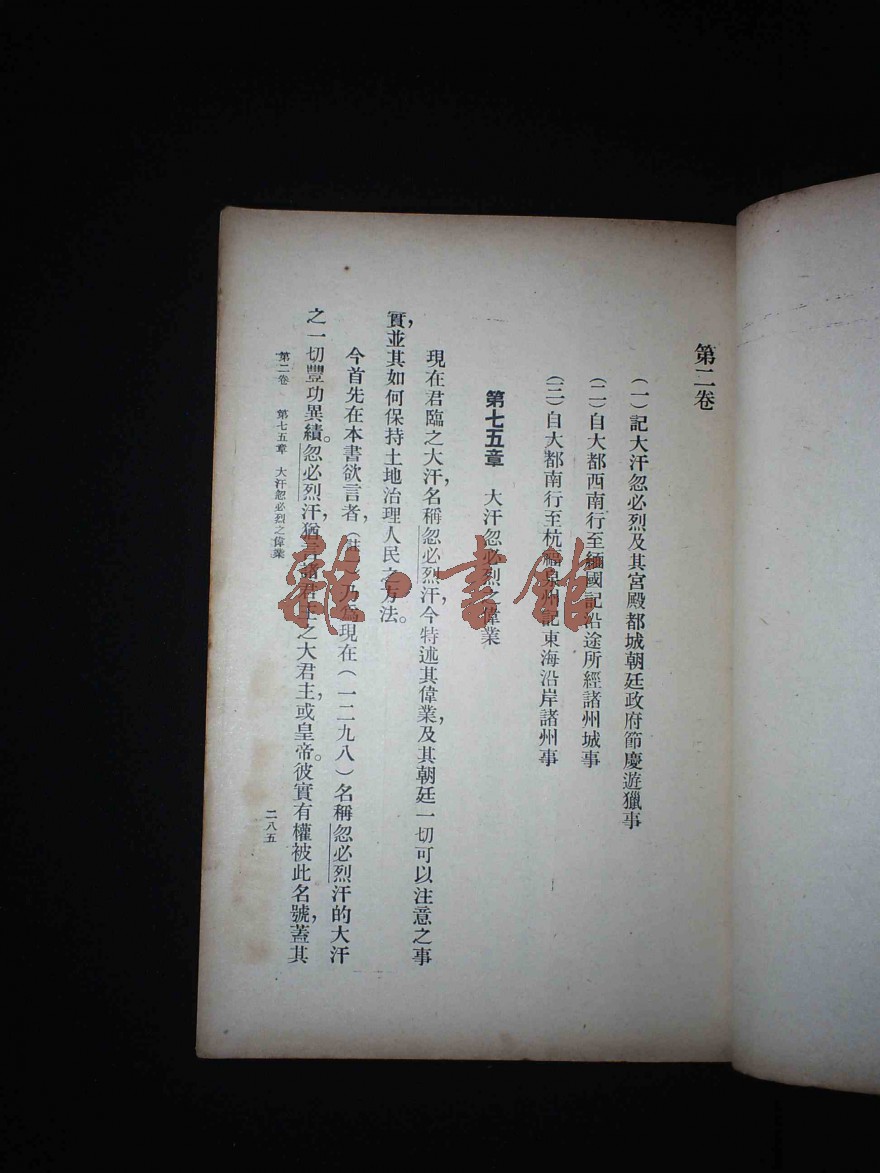 第二卷
（一）記大汗忽必烈及其宮殿都城朝廷政府節慶遊獵事
（二）自大都西南行至緬國記沿途所經諸州城事
（三）自大都南行至杭福泉州記東海沿岸諸州事
第七五章　大汗忽必烈之偉業
現在君臨之大汗，名稱忽必烈汗，今特述其偉業，及其朝廷一切可以注意之事
實，並其如何保持土地治理人民之方法。
今首先在本書欲言者，（註一）乃爲現在（一二九八）名稱忽必烈汗的大汗
之一切豐功異績。忽必烈汗，猶言諸君主之大君主，或皇帝。彼實有權被此名號，蓋其
第二卷　第七五章　大汗忽必烈之偉業
二八五
書館